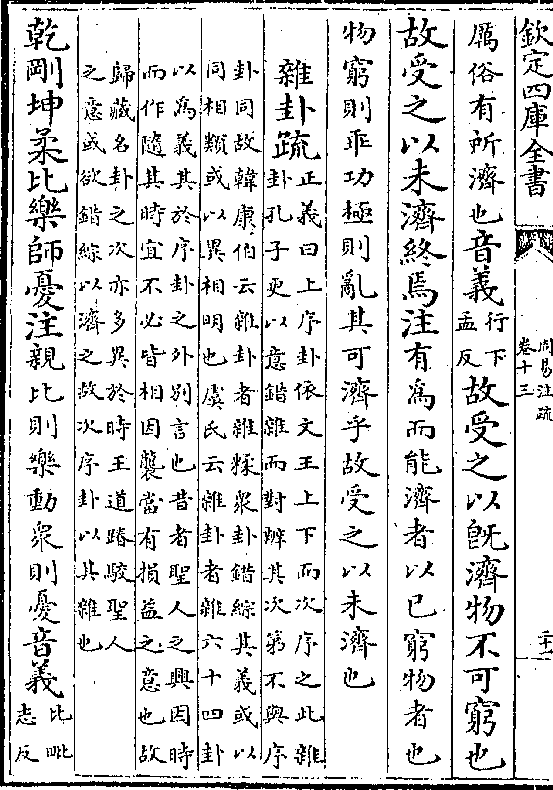 欽定四庫全書
周易注疏
卷十三
厲俗有所濟也音義
行下
孟反
故受之以既濟物不可窮也
故受之以未濟終焉注有為而能濟者以已窮物者也
物窮則乖功極則亂其可濟乎故受之以未濟也
雜卦疏
正義曰上序卦依文王上下而次序之此雜
卦孔子更以意錯雜而對辨其次第不與序
卦同故韓康伯云雜卦者雜糅衆卦錯綜其義或以
同相類或以異相明也虞氏云雜卦者雜六十四卦
以為義其於序卦之外別言也昔者聖人之興因時
而作隨其時宜不必皆相因襲當有損益之意也故
歸藏名卦之次亦多異於時王道踳駁聖人
之意或欲錯綜以濟之故次序卦以其雜也
乾剛坤柔比樂師憂注親比則樂動衆則憂音義
比毗
志反